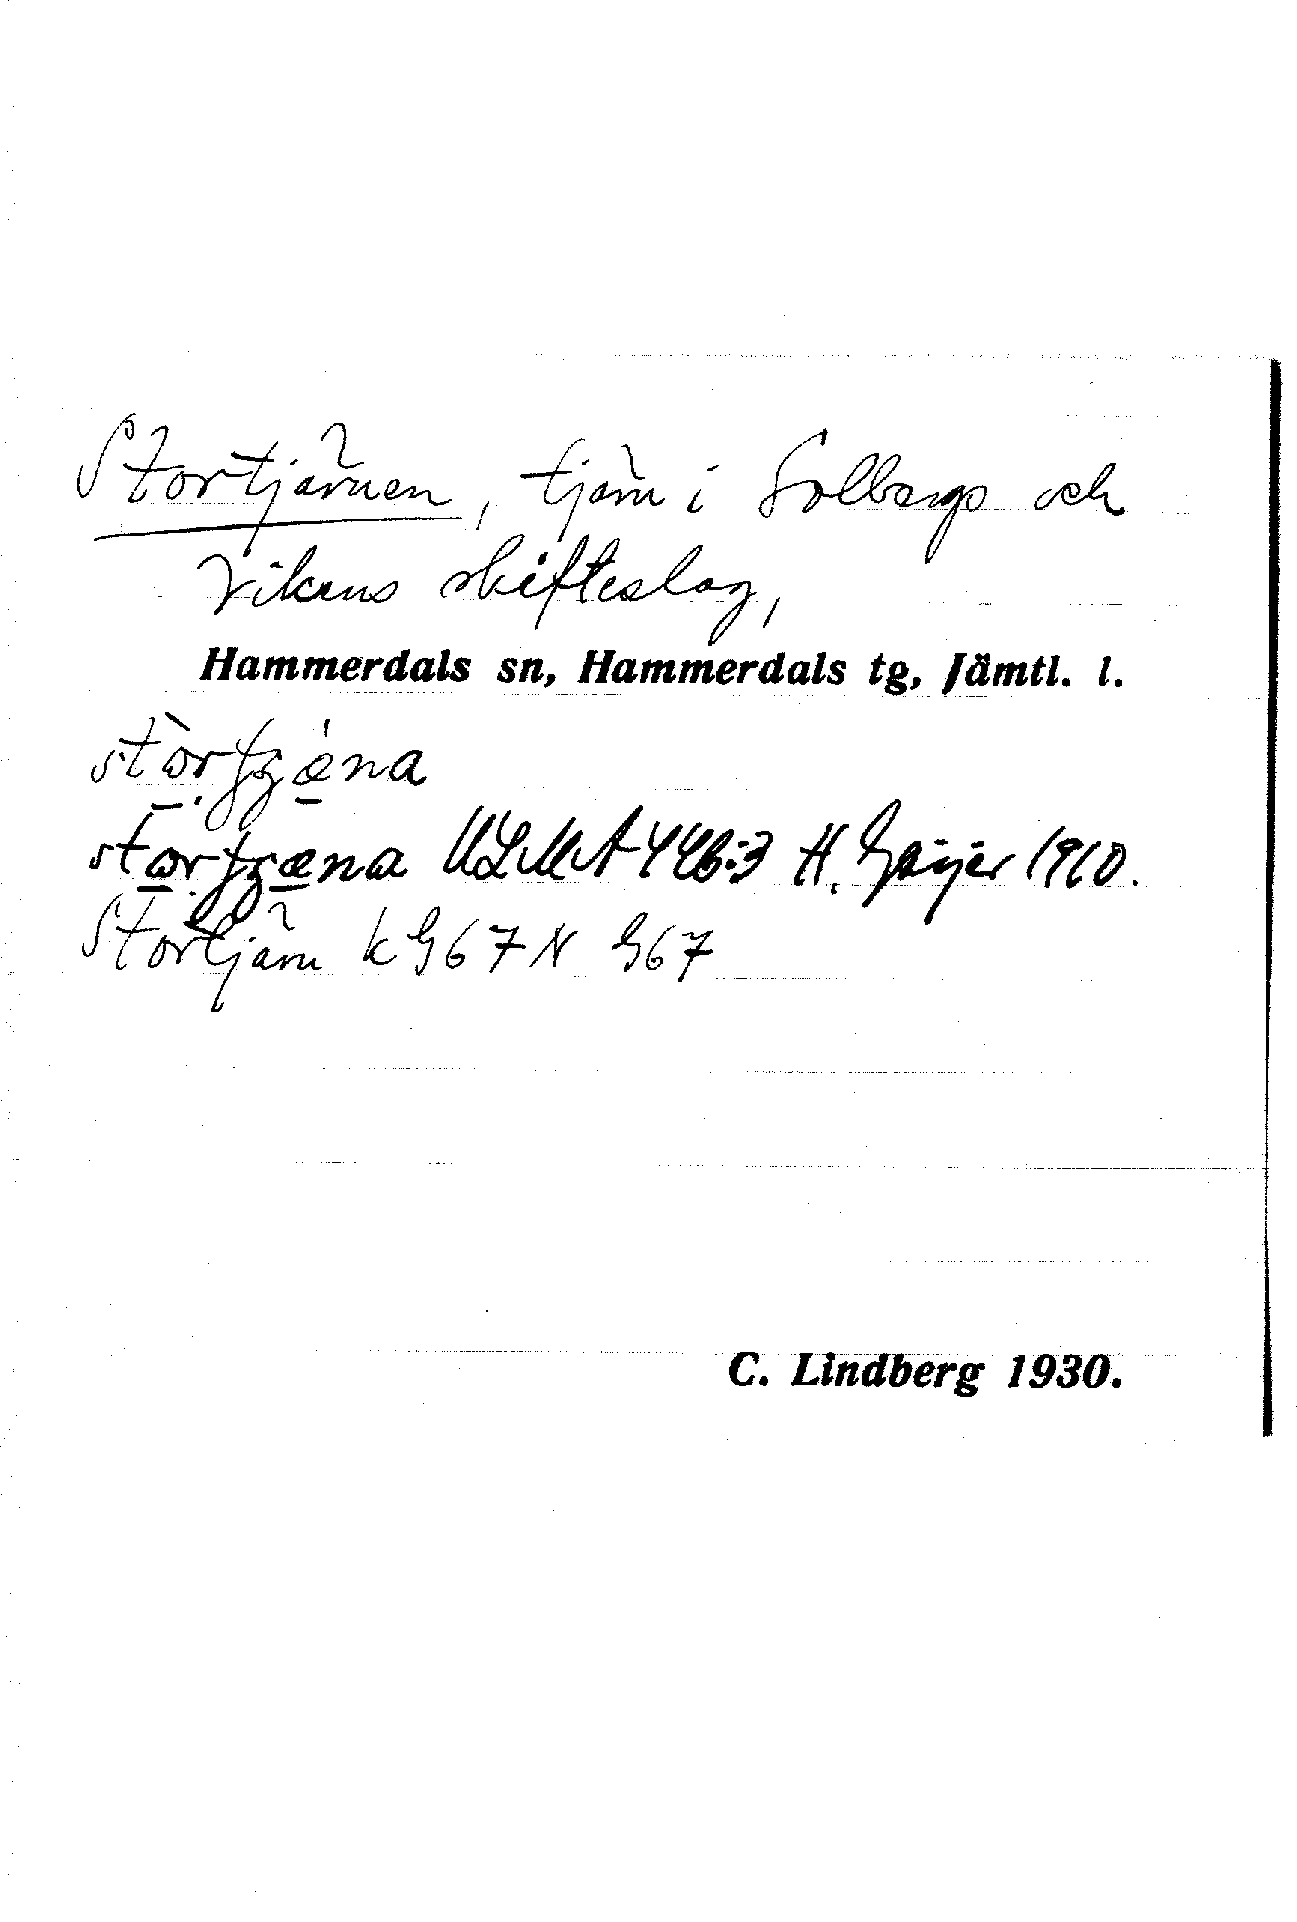 Stortjärnen, tjärn i Solbergs och
Vikens skifteslag,
Hammerdals sn, Hammerdals tg, Jämtl. l.
ULMA 446:3 H. Geijer 1910.
Stortjärn k G67 N G67
C. Lindberg 1930.